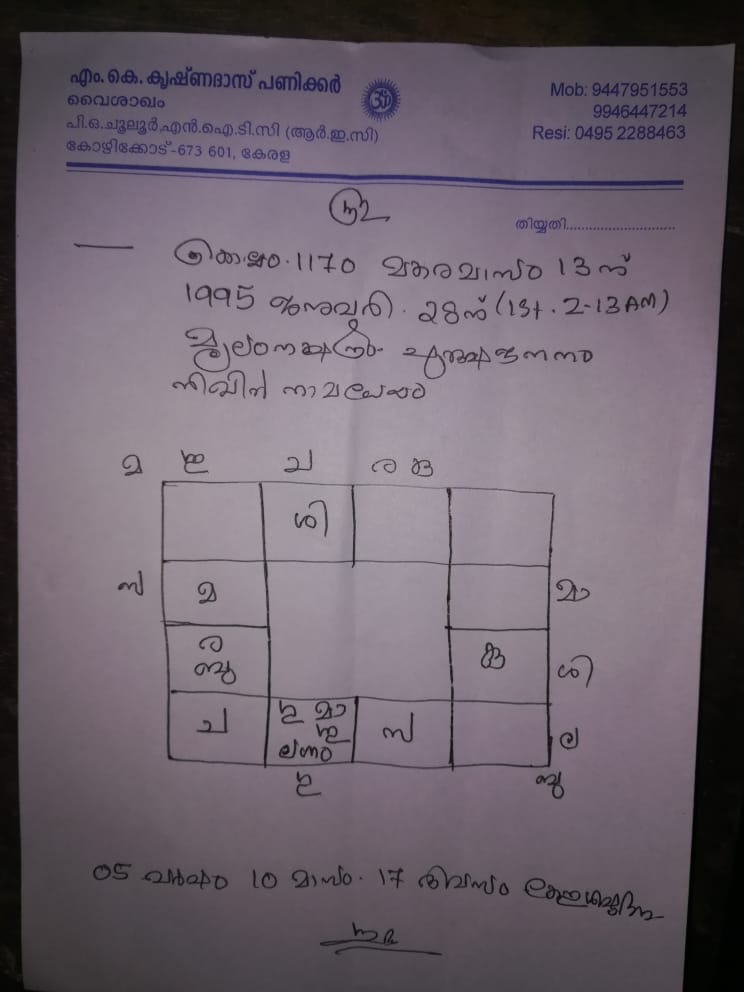 എം.കെ. കൃഷ്ണദാസ് പണിക്കർ
വൈശാഖം
പി.ഒ.ചൂലൂർ,എൻ.ഐ.ടി.സി (ആർ.ഇ.സി)
കോഴിക്കോട്-673 601, കേരള
Mob: 9447951553
9946447214
Resi: 0495 2288463
തിയ്യതി............................
കൊല്ലം. 1170 മകരമാസം 13 ന്
1995 ജനുവരി. 28ന് (1st. 2-13 AM)
മൂലംനക്ഷത്രം പുരുഷജനനം
നിഖിൽ നാമധേയം
മ ച
ശി
സ മ മാ
ര ശി
ബു
ച മാ സ ല
ലഗ്നം
ബു
05 വർഷം 10 മാസം. 17 ദിവസം